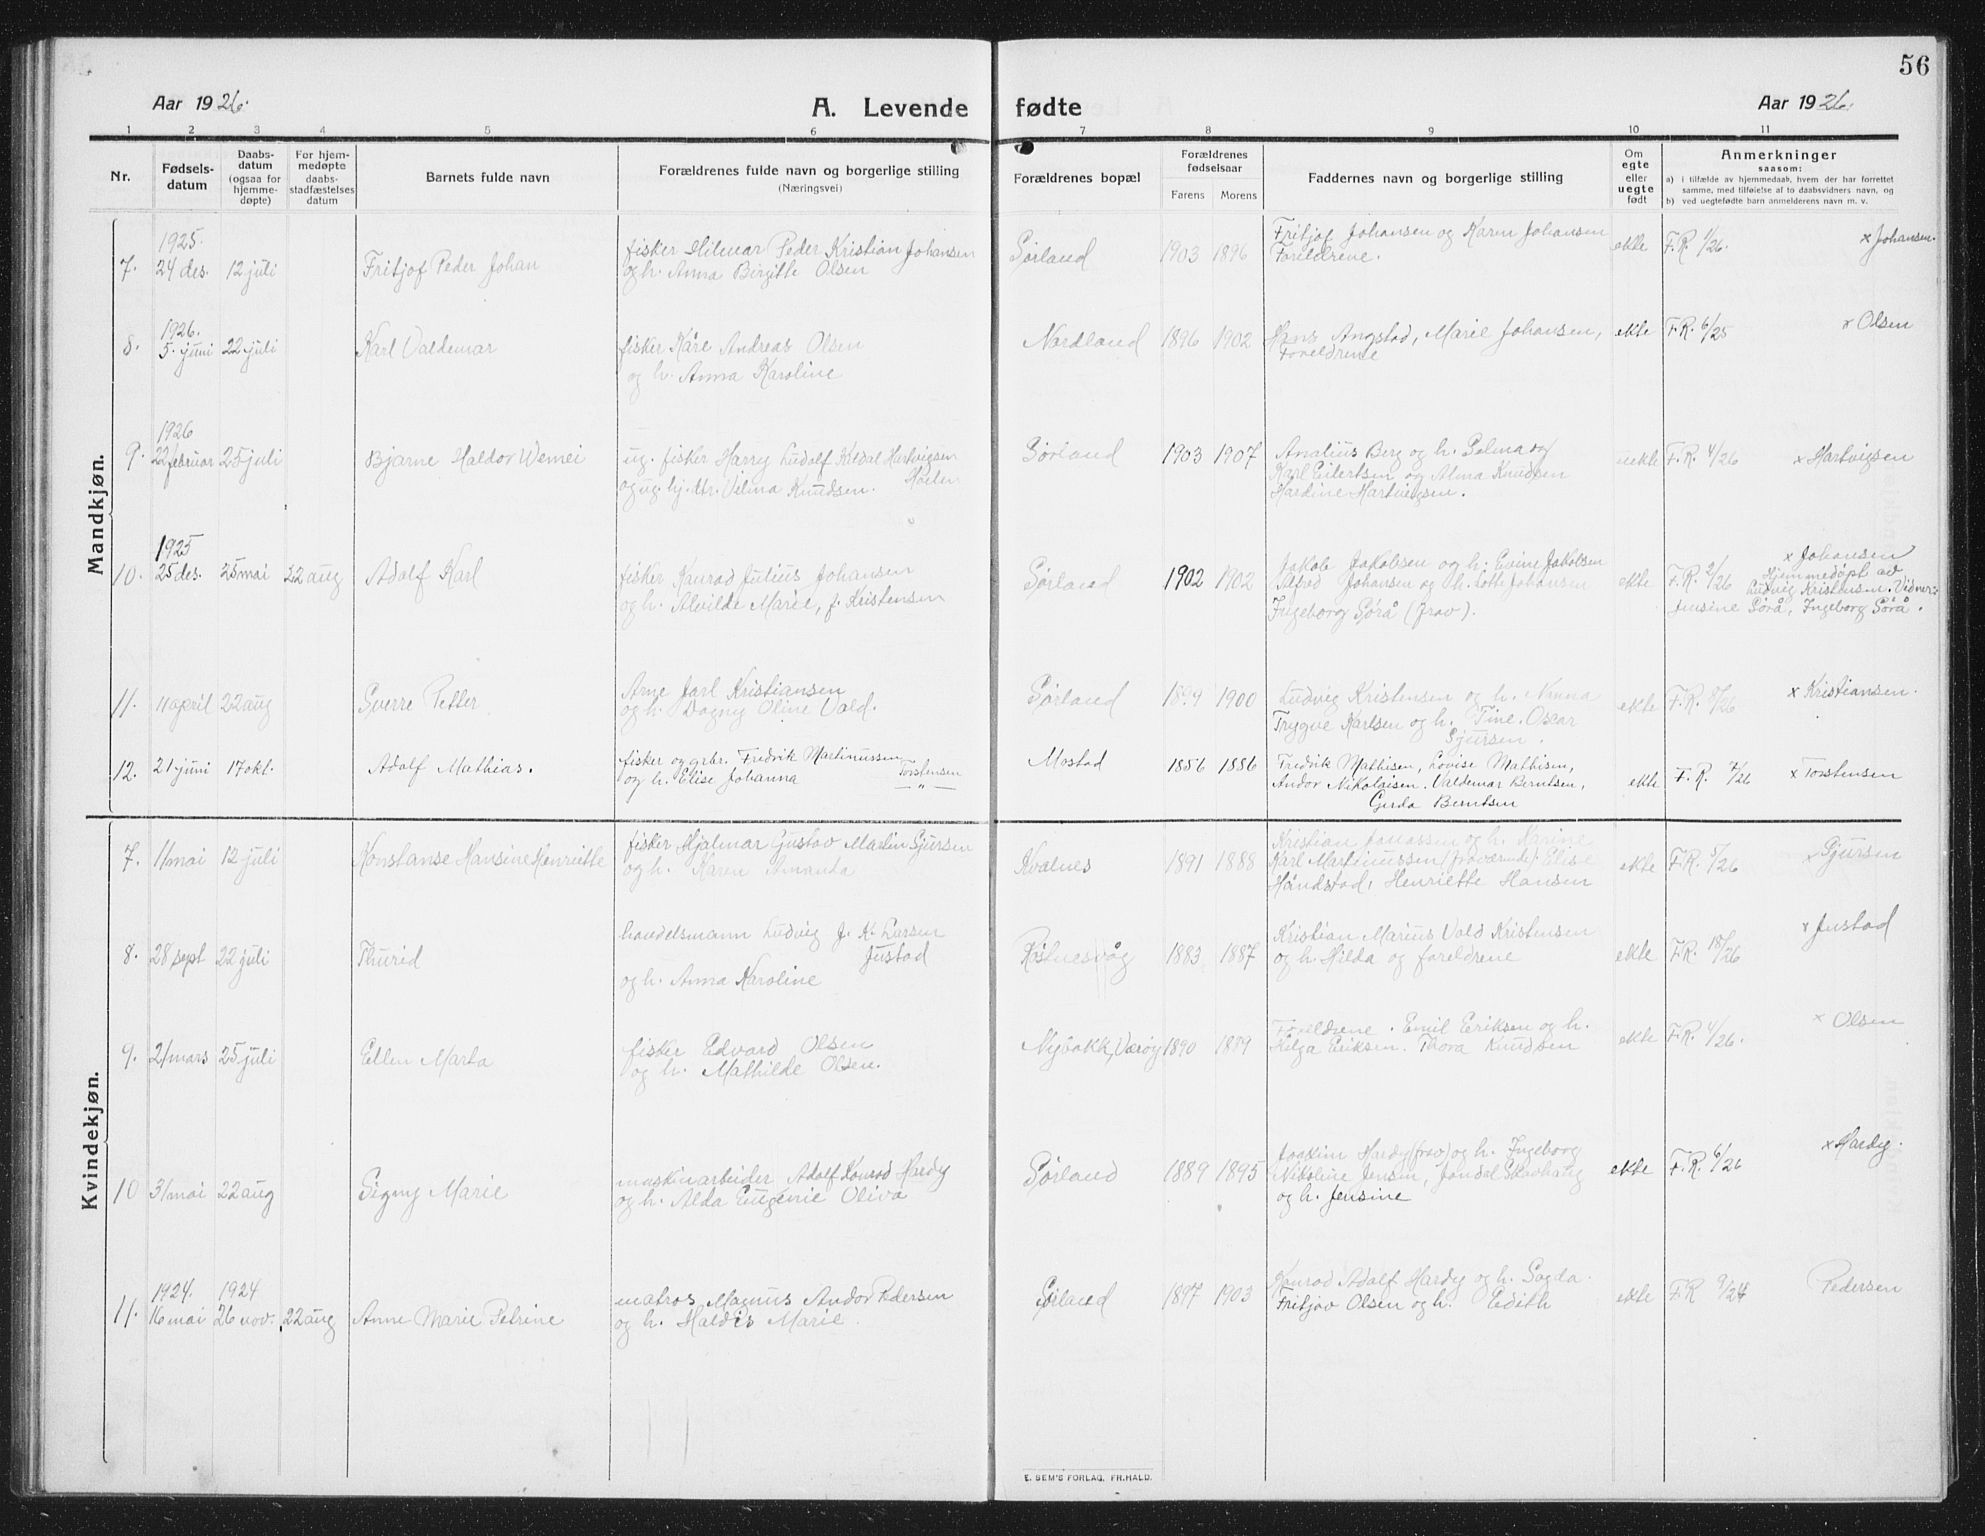 56
Aar 1926.
A. Levende fødte
Aar 1926.
1 2 3 4 5 6 7 8 9 10 11
Nr.
Fødsels-
datum
Daabs-
datum
(ogsaa for
hjemme-
døpte)
For hjem-
medøpte
daabs-
stadfæstelses
datum
Barnets fulde navn
Forældrenes fulde navn og borgerlige stilling
(Næringsvei)
Forældrenes bopæl
Forældrenes
fødselsaar
Farens Morens
Faddernes navn og borgerlige stilling
Om
egte
eller
uegte
født
Anmerkninger
saasom:
a) i tilfælde av hjemmedaab, hvem der har forrettet
samme, med tilføielse af to daabsvidners navn, og
b) ved uegtefødte barn anmelderens navn m. v.
Mandkjøn.
1925.
7. 24 des. 12 juli Fritjof Peder Johan
fisker Hilmar Peder Kristian Johansen
og h. Anna Birgitte Olsen
Sørland 1903 1896
Fritjof Johansen og Karen Johansen
Foreldrene.
ekte F.R. 1/26. x Johansen.
1926.
8. 5. juni 22 juli Karl Valdemar
fisker Kåre Andreas Olsen
og h. Anna Karoline
Nordland 1896 1902
Hans Angstad, Marie Johansen,
Foreldrene
ekte F.R. 6/25 x Olsen
1926
9. 22 februar 25 juli Bjarne Haldor Wemei
ug. fisker Harry Ludolf Kildal Hartvigsen
og ug. hj. dtr. Velma Knudsen.
Sørland 1903 1907
Analius Berg og h. Solma og
Karl Eilertsen og Alma Knudsen
Hardine Hartvigsen.
uekte F.R. 4/26 x Hartvigsen
1925
10. 25 des. 25 mai 22 aug Adolf Karl
fisker Konrad Julius Johansen
og h. Alvilde Marie, f. Kristensen
Sørland 1902 1902
Jakob Jakobsen og h. Evine Jakobsen
Alfred Johansen og h. Lotte Johansen
Ingeborg Sørå (frav).
ekte F.R. 2/26
x Johansen
Hjemmedøpt av
Ludvig Kristensen. Vidner:
Jensine Sørå, Ingeborg Sørå.
11. 11 april 22 aug Sverre Petter
Arne Jarl Kristiansen
og h. Dagny Oline Vold.
Sørland 1899 1900
Ludvig Kristensen og h. Nanna
Trygve Karlsen og h. Tine. Oscar
Sjursen.
ekte F.R. 8/26 x Kristiansen.
12. 21 juni 17 okt. Adolf Mathias.
fisker og grbr. Fredrik Martinussen
og h. Elise Johanna Torstensen
— „ —
Mostad 1886 1886
Fredrik Mathisen, Lovise Mathisen,
Andor Nikolaisen. Valdemar Berntsen,
Gerda Berntsen
ekte F. R. 7/26 x Torstensen
Kvindekjøn.
7. 11 mai 12 juli Konstanse Hansine Henriette
fisker Hjalmar Gustav Martin Sjursen
og h. Karen Amanda
Kvalnes 1891 1888
Kristian Jonassen og h. Karine
Karl Martinussen (fraværende). Elise
Håndstad, Henriette Hansen
ekte F.R. 5/26 x Sjursen
8. 28 sept 22 juli Thurid
handelsmann Ludvig J. K. Larsen
Justad
og h. Anna Karoline
Røstnesvåg 1883 1887
Kristian Marius Vold Kristensen
og h. Hilda og foreldrene
ekte F.R. 18/26 x Justad
9. 21 mars 25 juli Ellen Marta
fisker Edvard Olsen
og h. Mathilde Olsen.
Nybakk, Værøy 1890 1889
Foreldrene. Emil Eriksen og h.
Helga Eriksen. Thora Knudsen
ekte F.R. 4/26. x Olsen
10 31 mai 22 aug Signy Marie
maskinarbeider Adolf Konrad Hardy
og h. Alda Eugenie Oliva
Sørland 1889 1895
Joakim Hardy (frav) og h. Ingeborg
Nikoline Jensen, Jondal Skavhaug
og h. Jensine
ekte F.R. 6/26 x Hardy.
1924. 1924
11. 16 mai 26 nov. 22 aug Anne Marie Petrine
matros Magnus Andor Pedersen
og h. Haldis Marie.
Sørland 1897 1903
Konrad Adolf Hardy og h. Sagda.
Fritjov Olsen og h. Edith
ekte F.R 9/24 Pedersen
E. SEM'S FORLAG, FR.HALD.